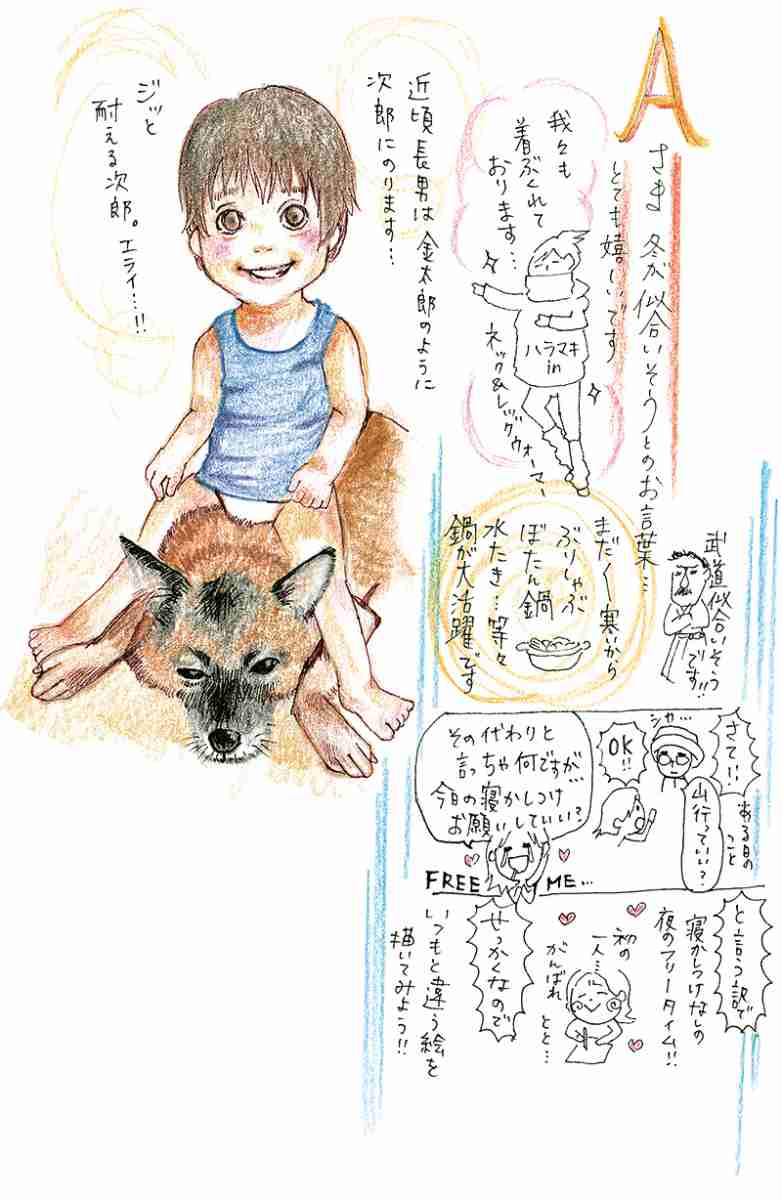 A
さき 冬が似合いそうとのお言葉…
とても嬉しいです
我々も
着ぶくれて
おります…
ハラマキ
in
ネック&レッグウォーマー
近頃長男は金太郎のように
次郎にのります…
ジッと
耐える次郎。エライ…!!
武道似合いそう
です!!
まだまだ寒いから
ぶりしゃぶ
ぼたん鍋
水たき…等々
鍋が大活躍です
さて!!
ある日の
こと
シャ…
山行っていい?
OK!!
その代わりと
言っちゃ何ですが…
今日の寝かしつけ
お願いしていい?
FREE ME…
と言う訳で
寝かしつけなしの
夜のフリータイム!!
初の
一人…
がんばれ
とと…
せっかくなので
いつもと違う絵を
描いてみよう!!